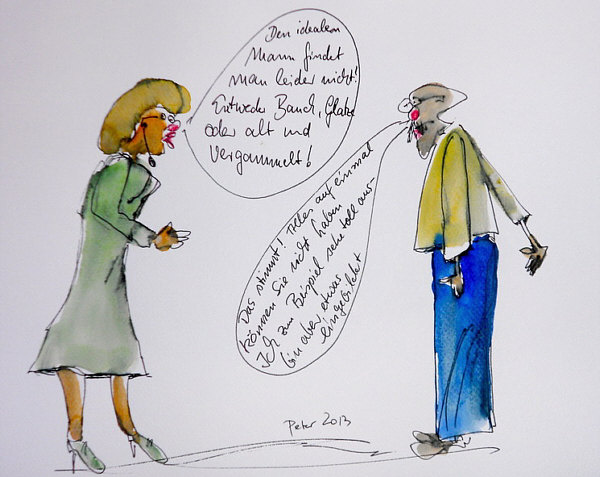 Den idealen
Mann findet
man leider nicht!
Entweder Bauch, Glatze
oder alt und
vergammelt!
Das stimmt! Alles auf einmal
können Sie nicht haben
Ich zum Beispiel sehe toll aus-
bin aber etwas
eingebildet
Peter 2013